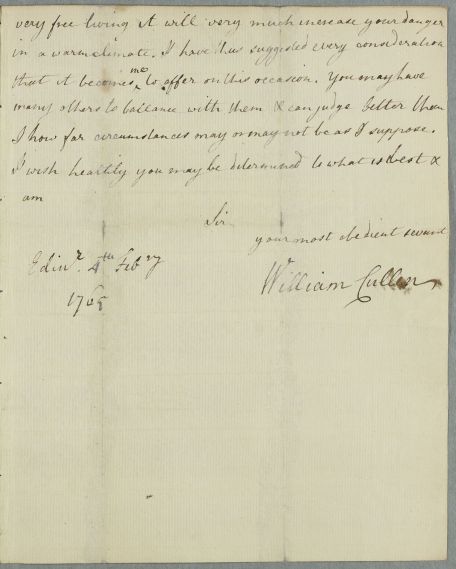 very free living it will very much increase your danger
in a warm climate. I have thus suggested every consideration
that it becomes me to offer on this occasion. You may have
many others to ballance with them & can judge better than
I how far circumstances may or may not be as I suppose.
I wish heartily you may be determined to what is best &
am
Sir
your most obedient servant
Edinr. 4th Febry
William Cullen
1765